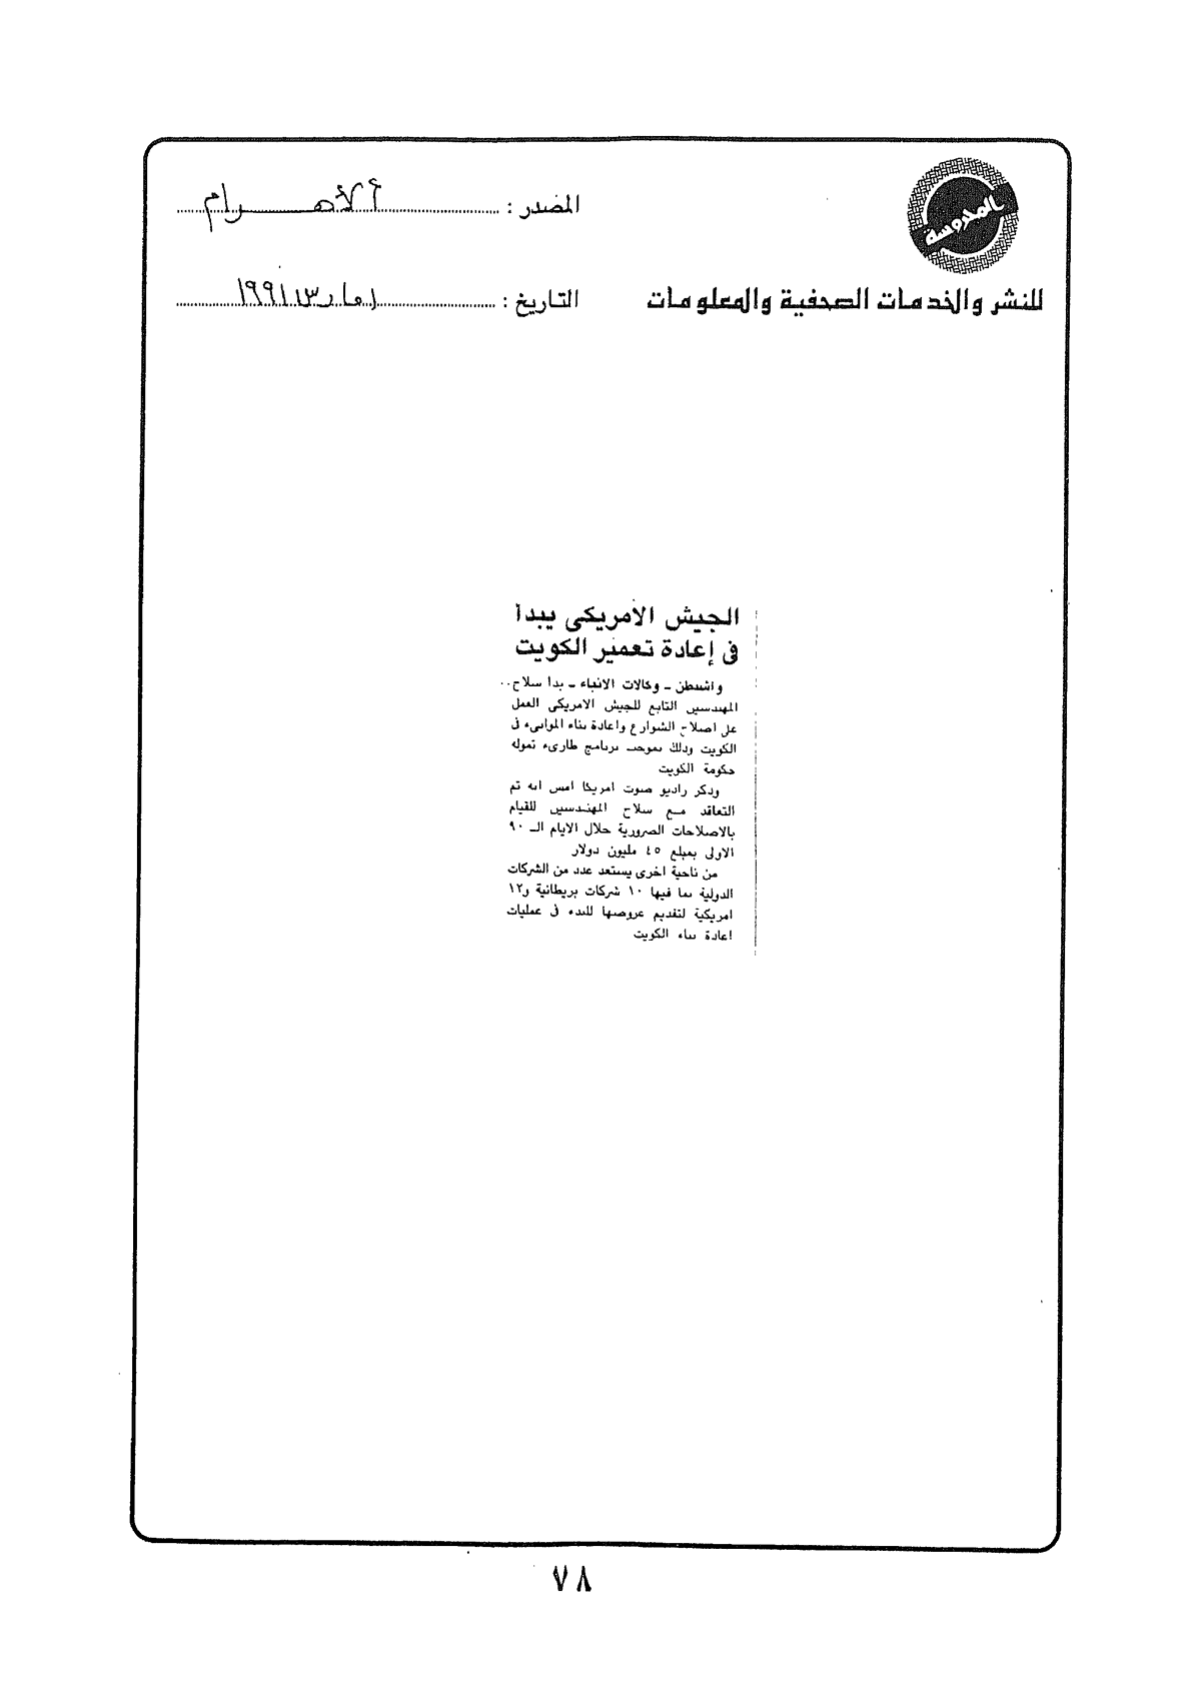 المحروسة
للنشر والخدمات الصحفية والمعلومات
المصدر : الأهرام
التاريخ : ١ مارس ١٩٩١
الجيش الأمريكى يبدأ
فى إعادة تعمير الكويت
واشنطن - وكالات الانباء - بدا سلاح
المهندسين التابع للجيش الامريكى العمل
على اصلاح الشوارع واعادة بناء الموانىء فى
الكويت وذلك بموجب برنامج طارىء تموله
حكومة الكويت
وذكر راديو صوت امريكا امس انه تم
التعاقد مع سلاح المهندسين للقيام
بالاصلاحات الضرورية خلال الايام الـ ٩٠
الاولى بمبلغ ٤٥ مليون دولار
من ناحية اخرى يستعد عدد من الشركات
الدولية بما فيها ١٠ شركات بريطانية و١٢
امريكية لتقديم عروضها للبدء فى عمليات
اعادة بناء الكويت
٧٨